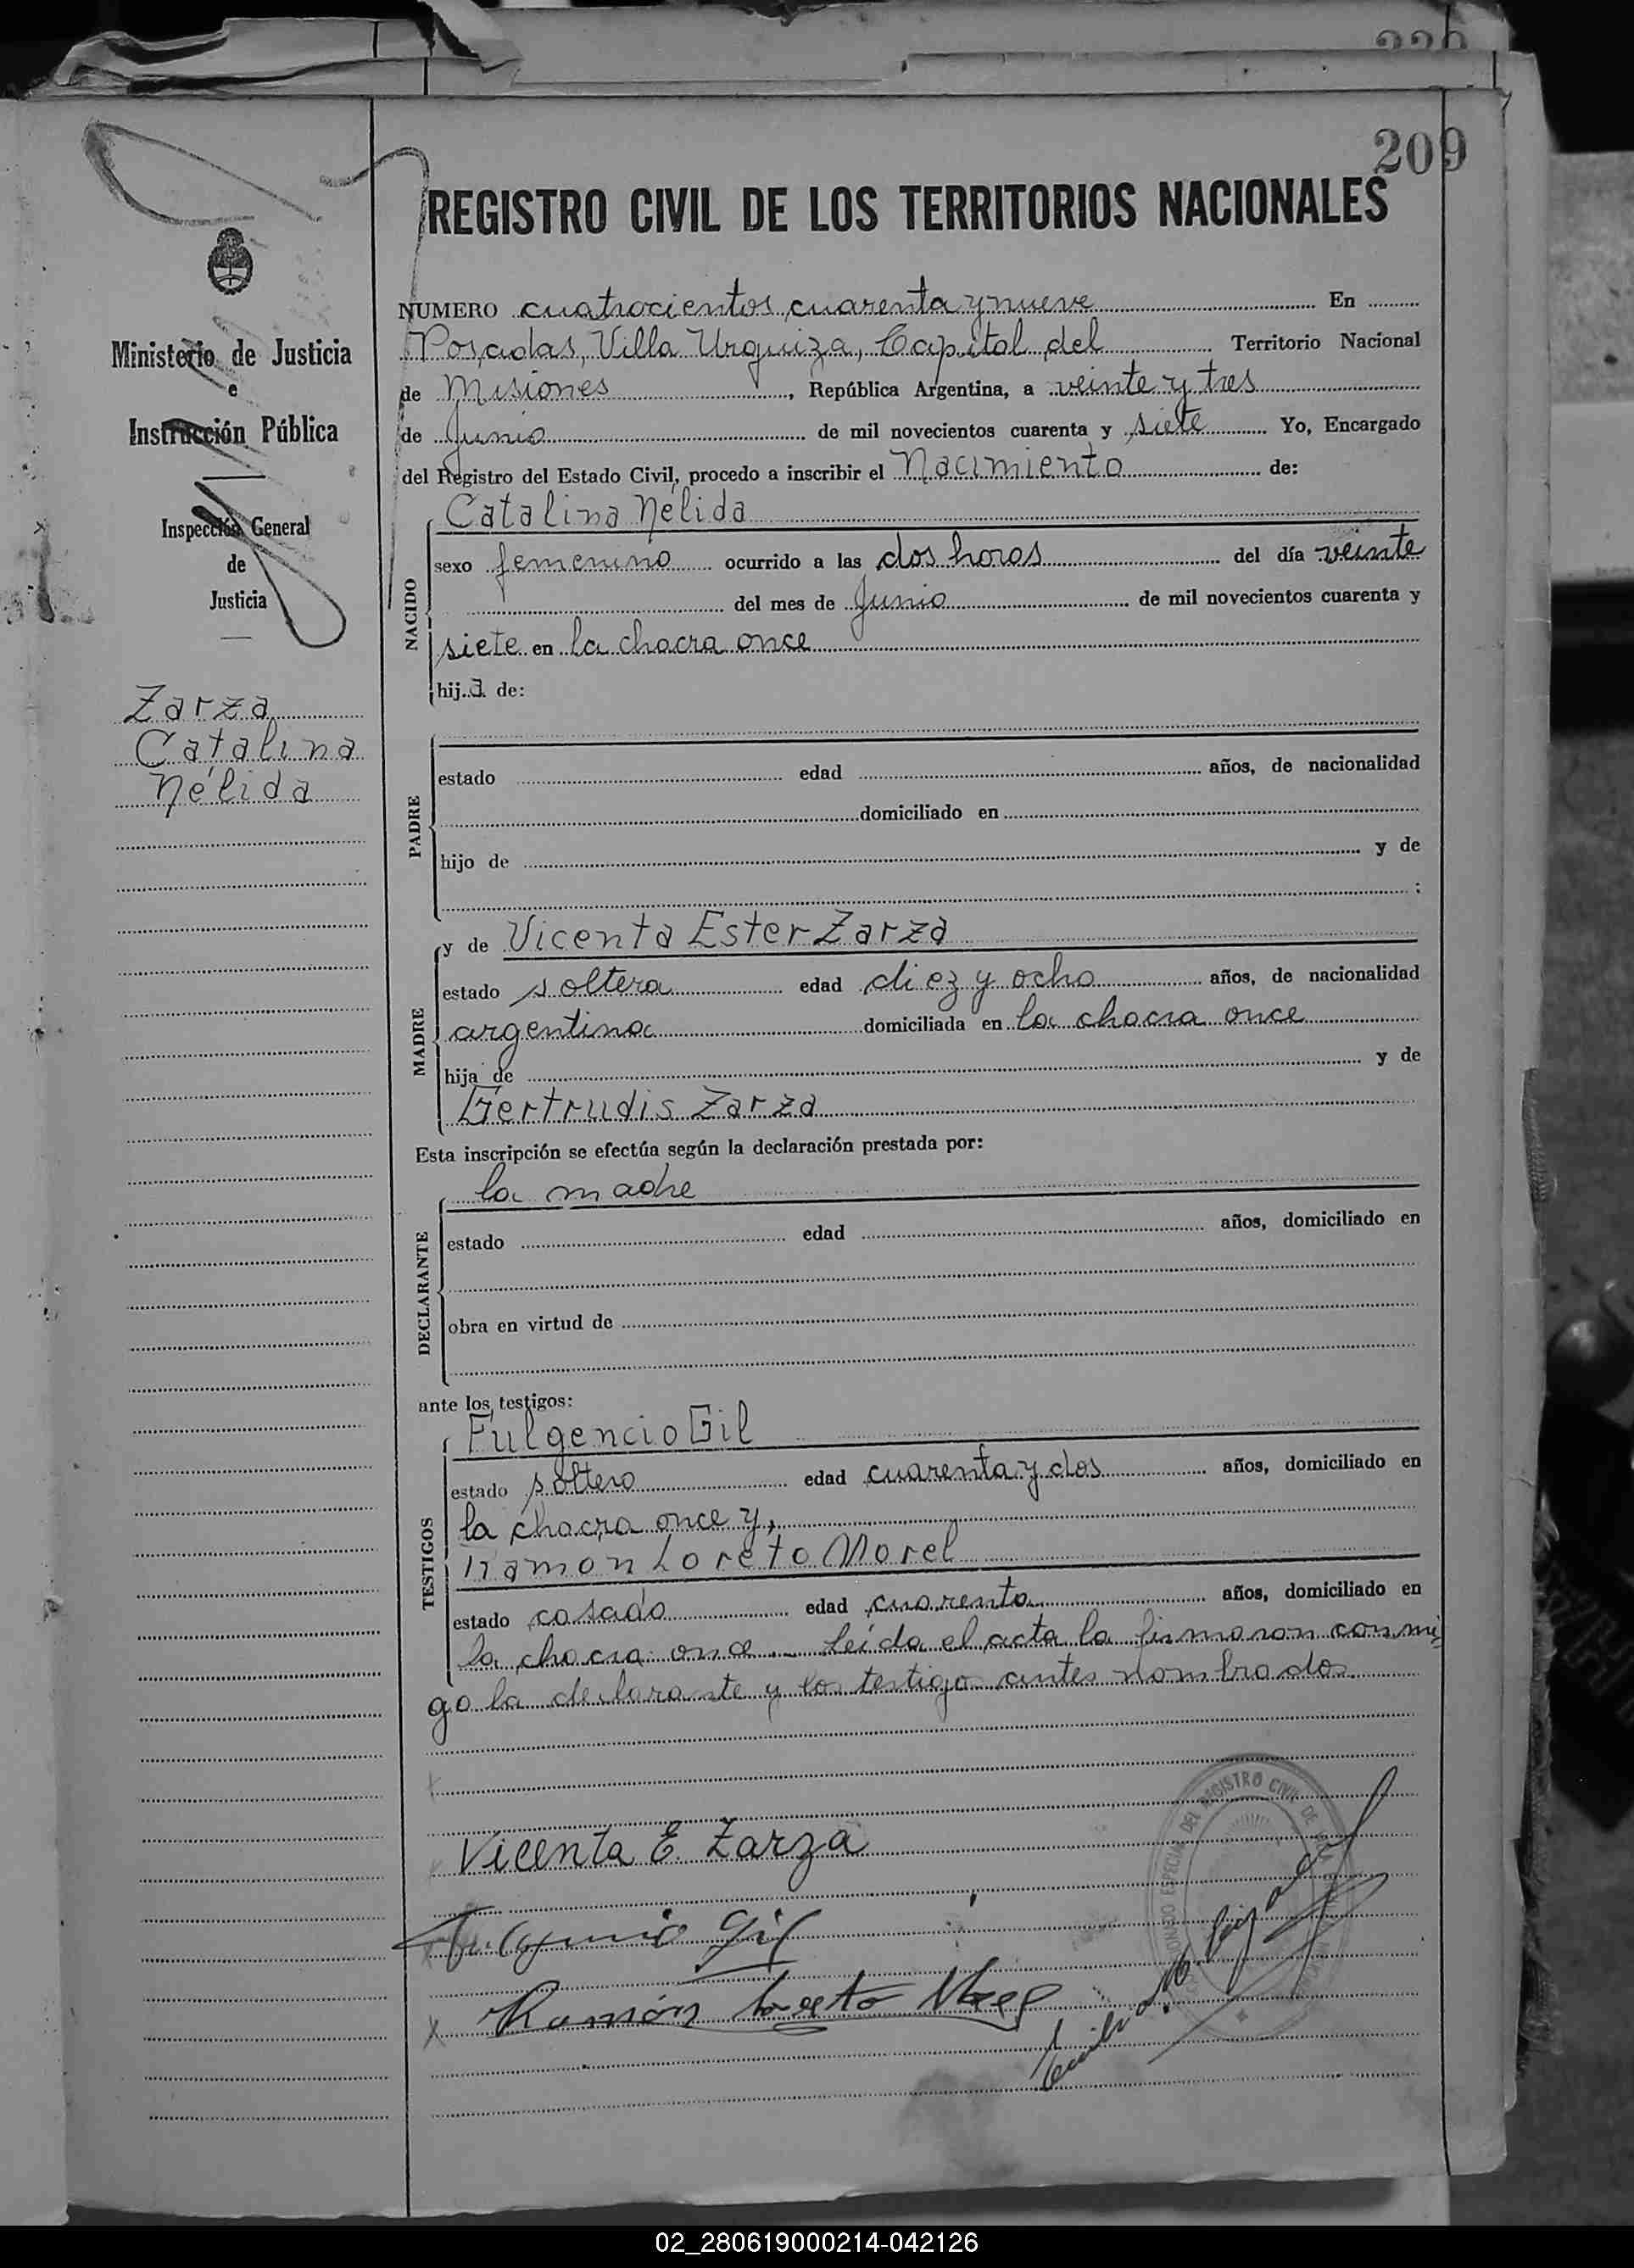 209
REGISTRO CIVIL DE LOS TERRITORIOS NACIONALES
Ministerio de Justicia
e
Instrucción Pública
Inspección General
de
Justicia
Zarza
Catalina
Nélida
NUMERO cuatrocientos cuarenta y nueve En
Posadas, Villa Urquiza, Capital del Territorio Nacional
de Misiones, República Argentina, a veinte y tres
de Junio de mil novecientos cuarenta y siete Yo, Encargado
del Registro del Estado Civil, procedo a inscribir el Nacimiento de:
NACIDO
Catalina Nélida
sexo femenino ocurrido a las dos horas del día veinte
del mes de Junio de mil novecientos cuarenta y
siete en la chacra once
hija de:
PADRE
estado edad años, de nacionalidad
domiciliado en
hijo de y de
;
MADRE
y de Vicenta Ester Zarza
estado soltera edad diez y ocho años, de nacionalidad
argentina domiciliada en la chacra once
hija de y de
Gertrudis Zarza
Esta inscripción se efectúa según la declaración prestada por:
DECLARANTE
la madre
estado edad años, domiciliado en
obra en virtud de
ante los testigos:
TESTIGOS
Fulgencio Gil
estado soltero edad cuarenta y dos años, domiciliado en
la chacra once y,
Ramon Loreto Morel
estado casado edad cuarenta años, domiciliado en
la chacra once. Leída el acta la firmaron conmi
go la declarante y los testigos antes nombrados
Vicenta E. Zarza
Fulgencio Gil
Ramón Loreto Morel
DEL REGISTRO CIVIL DE
02_280619000214-042126